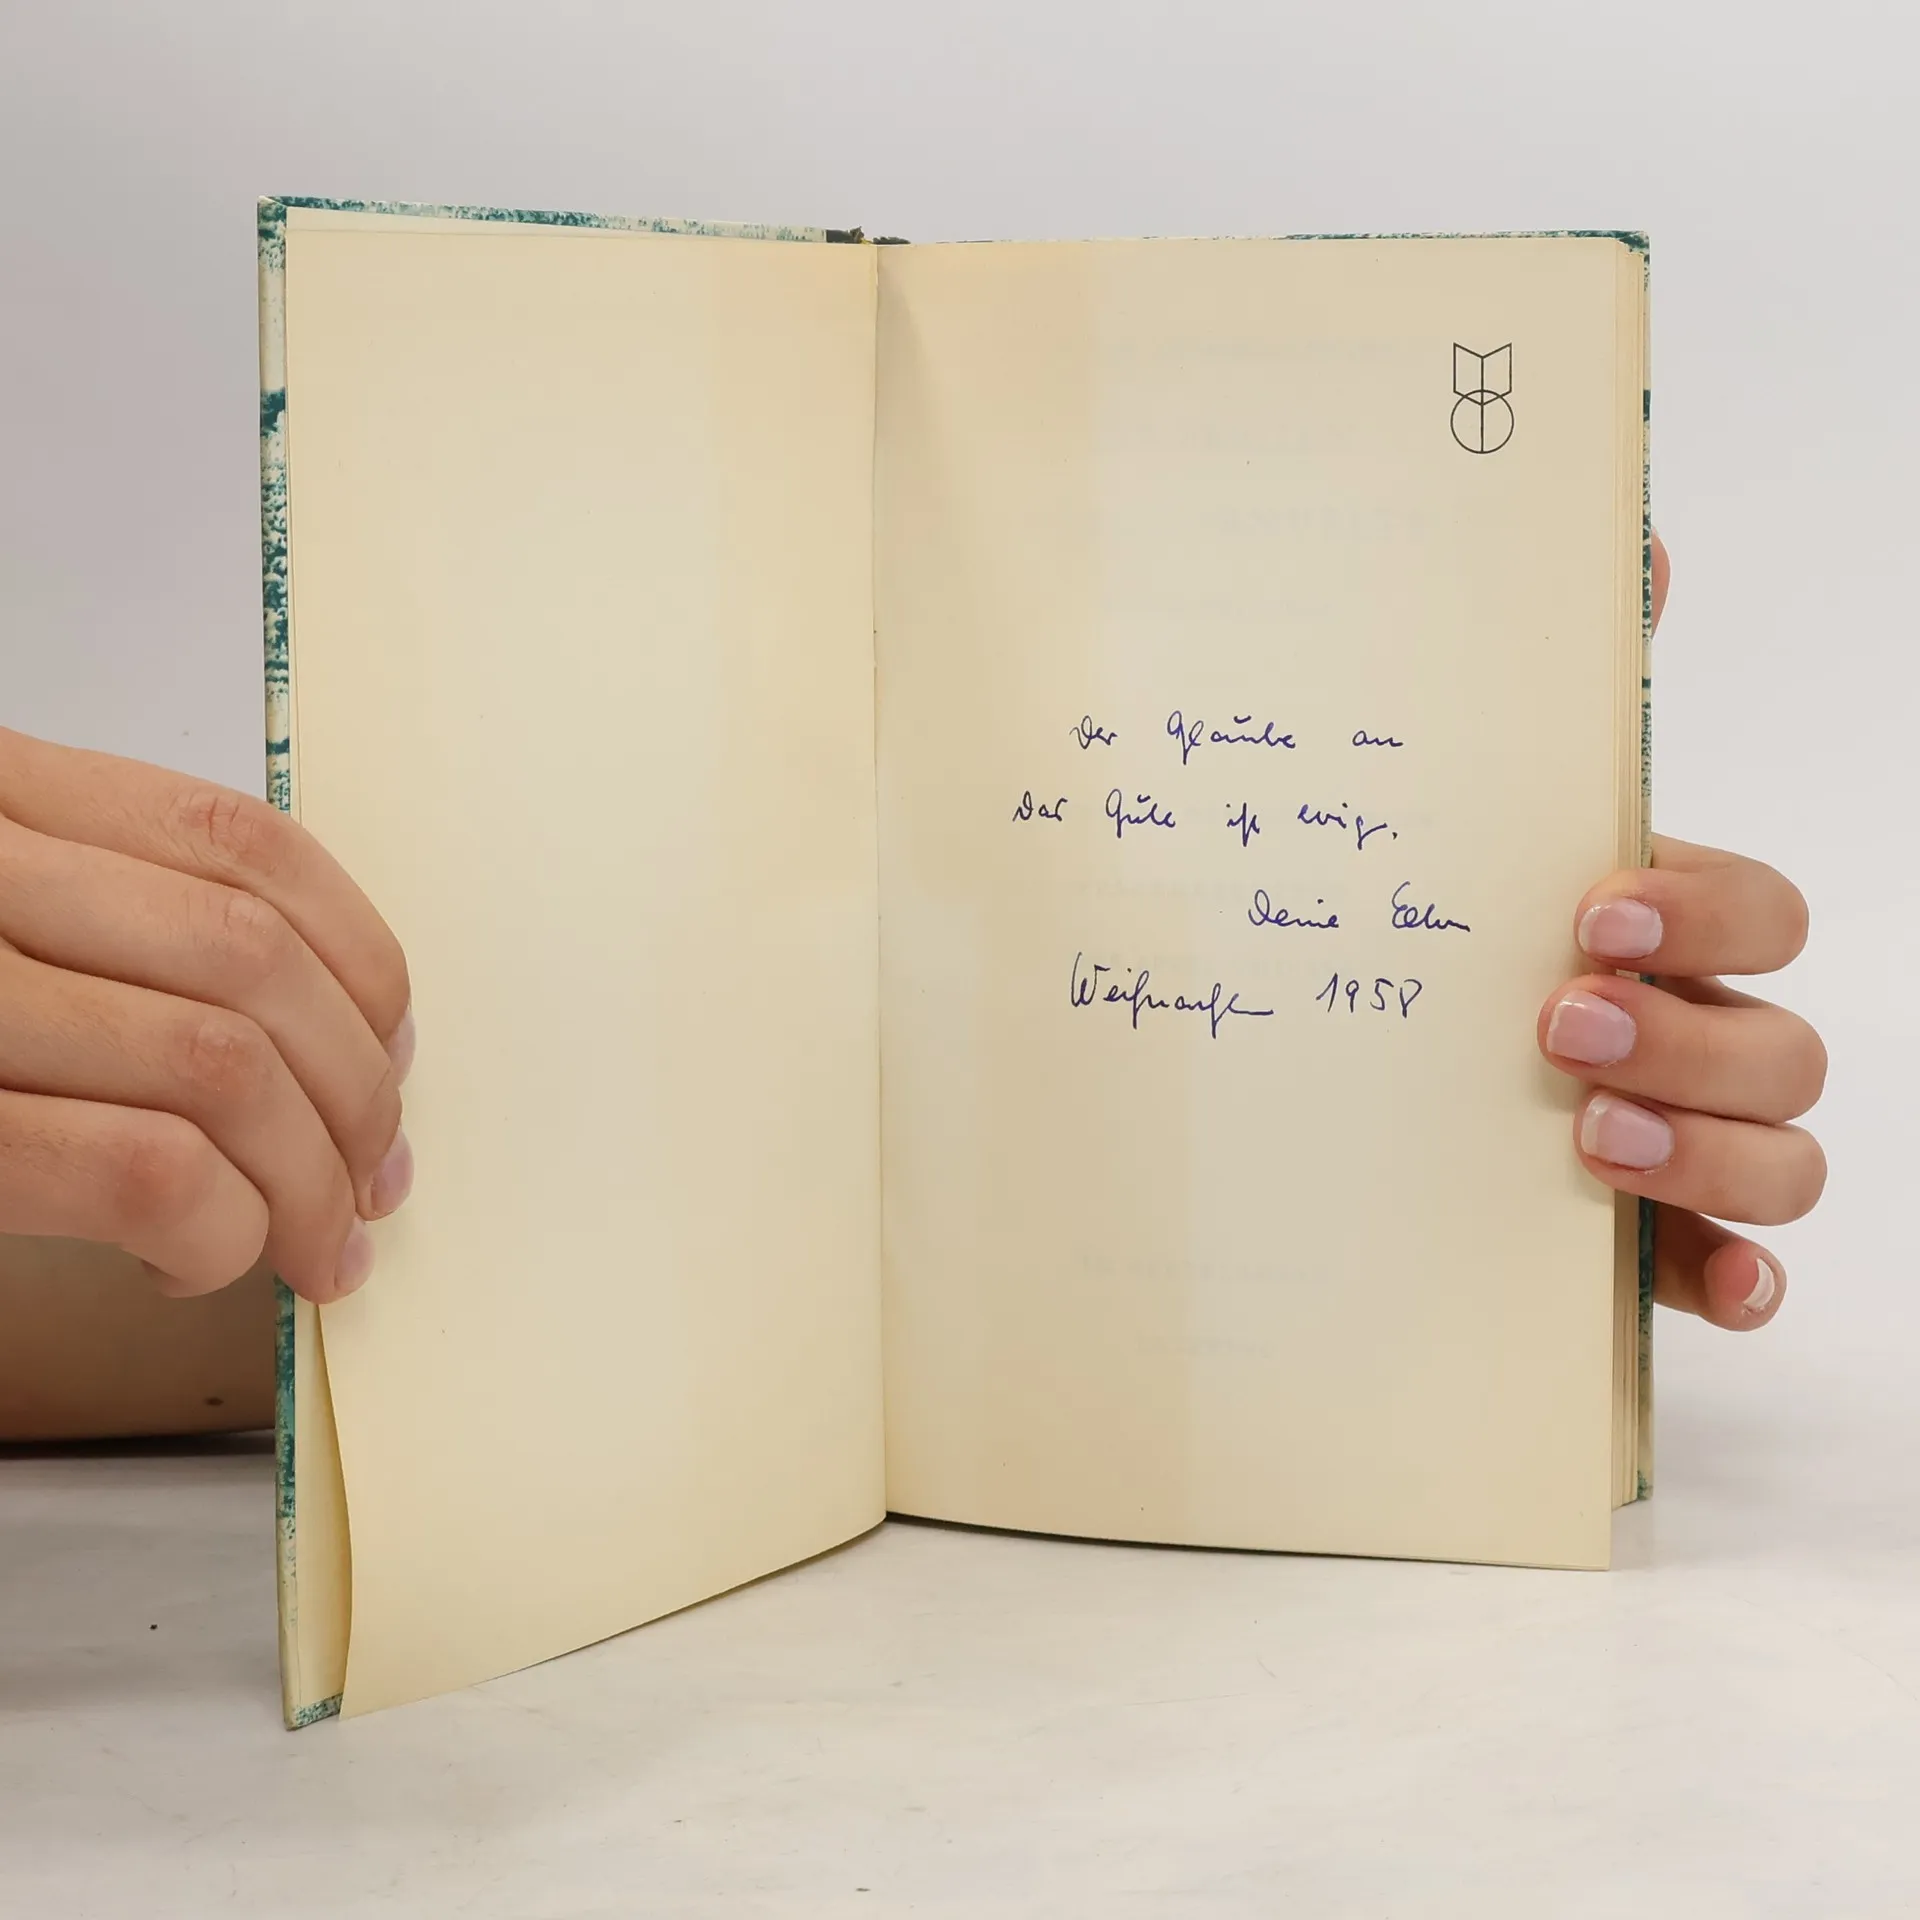 Der Glaube an
das Gute ist ewig.
Deine Eltern
Weihnachten 1958